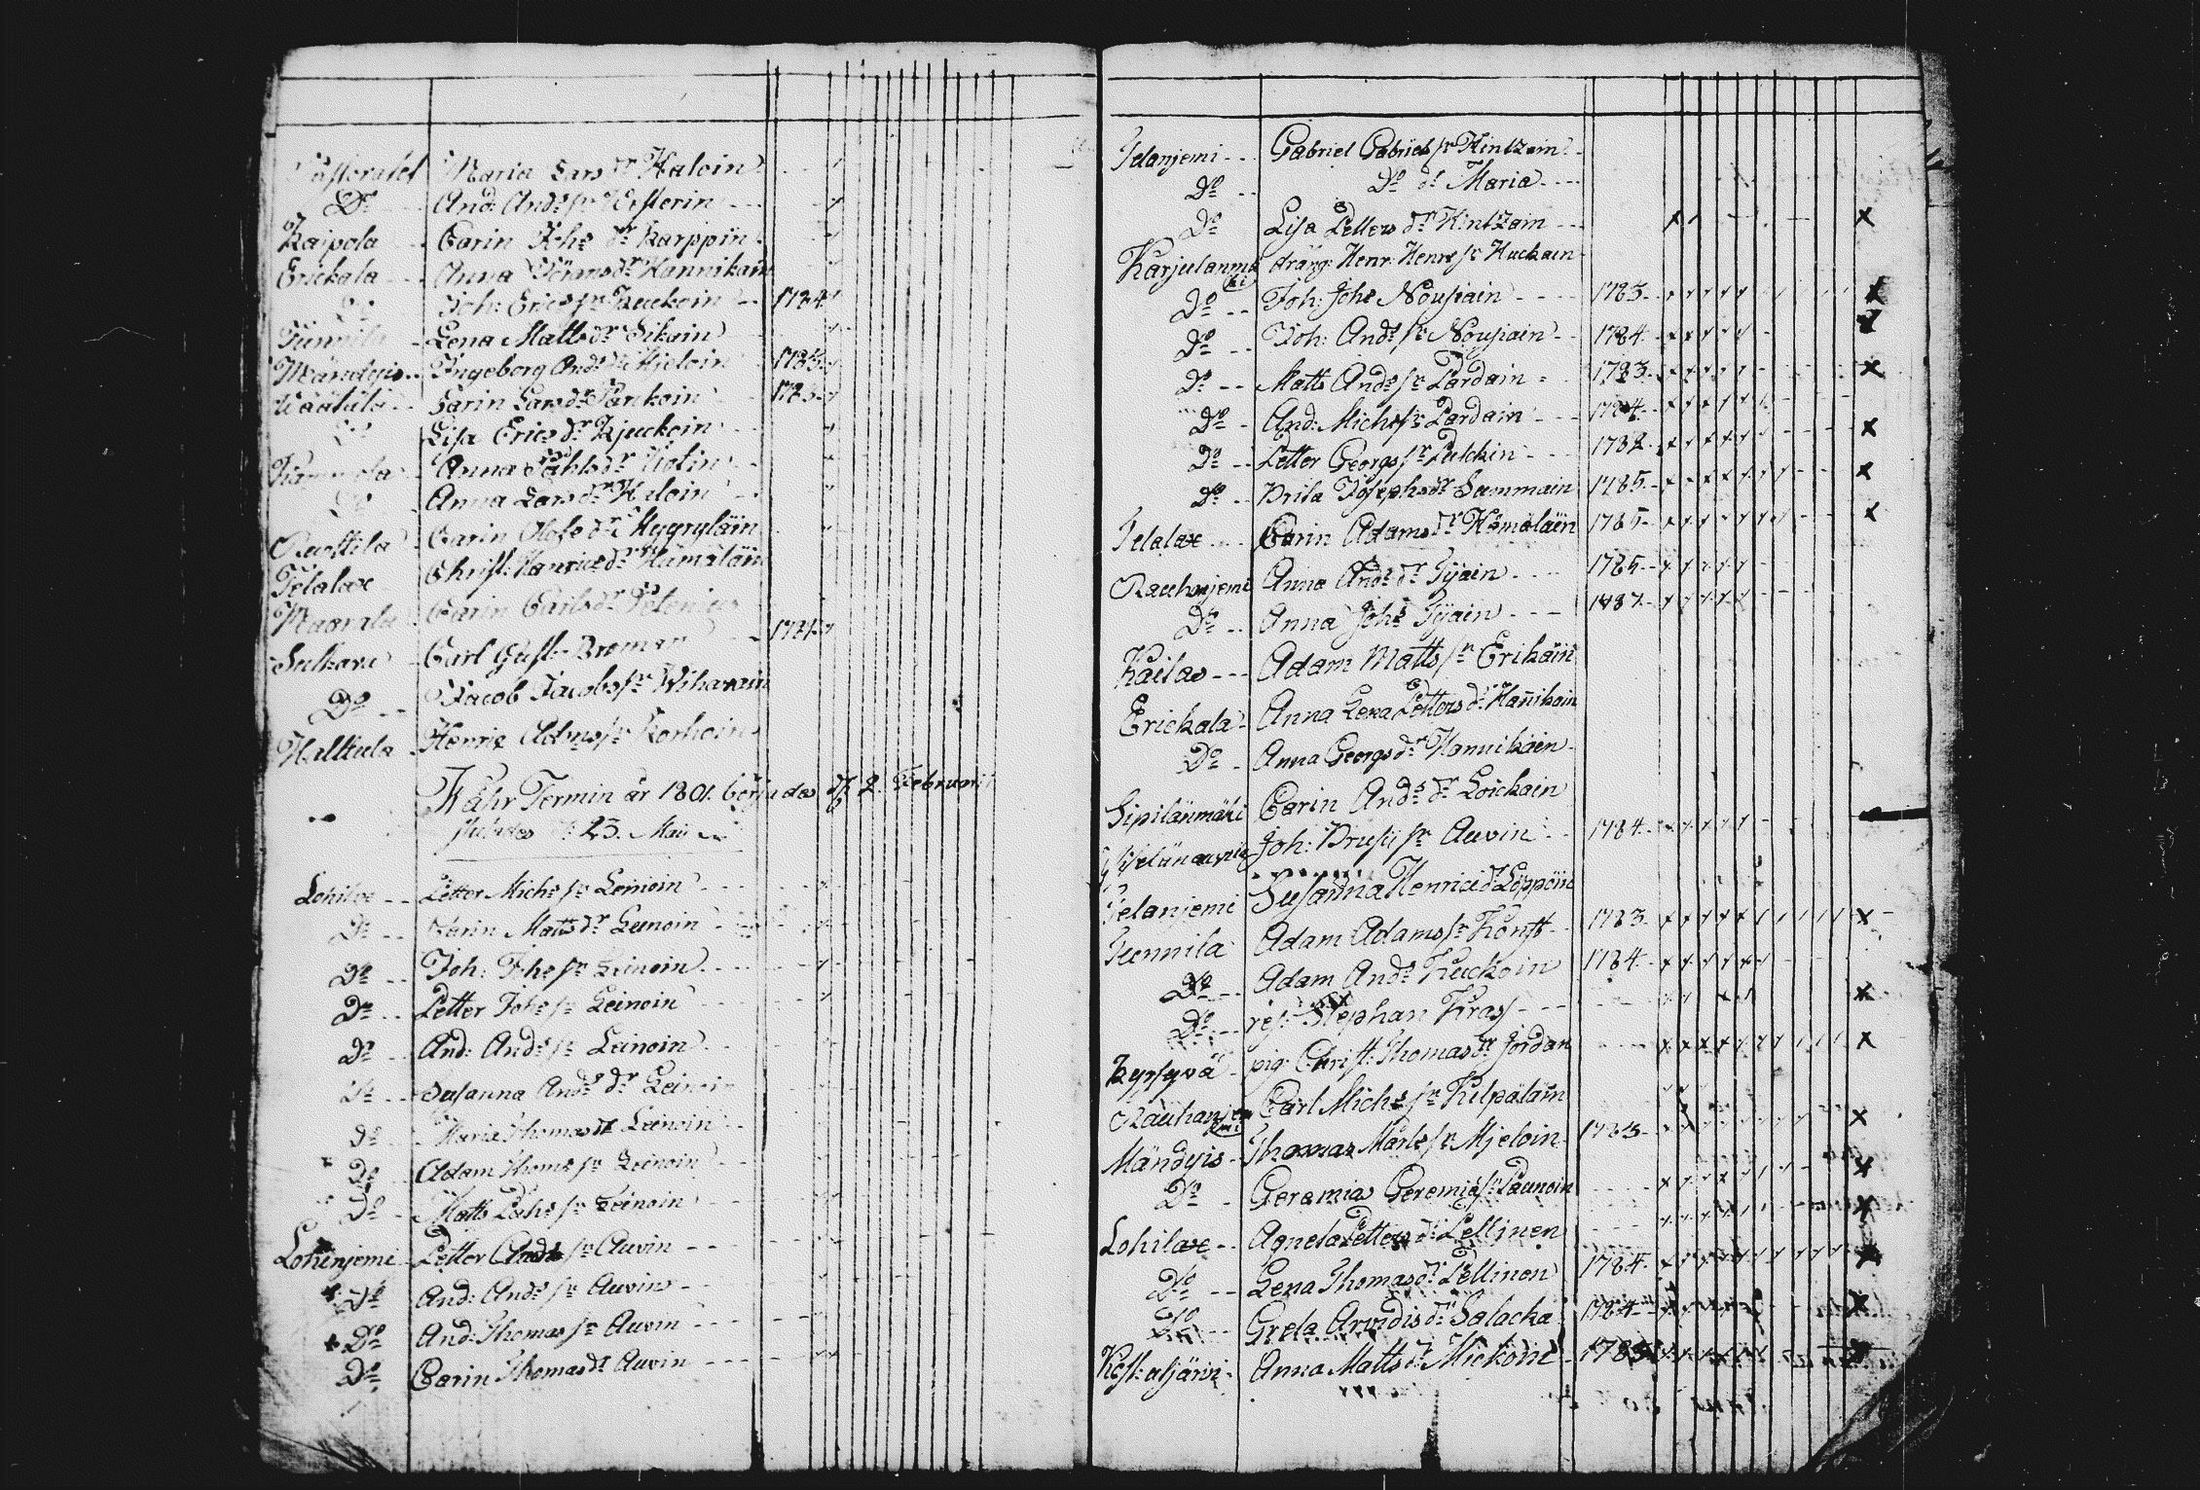 Pastoratet Maria Lars dr Haloin
Do And: Ands sr Westerin
Kaipola Carin Johs dr Karppin
Erickala Anna Görans dr Hannikain
Do Joh: Erics sr Kuckoin 1784
Lena Matts dr Sikain
Mändyis Ingeborg Ands dr Mjeloin 1785
Carin Lars dr Pankoin 1783
Do Lisa Erics dr Kjuckoin
Anna Påhls dr
Do Anna Lars dr Haloin
Ruottila Carin Olofs dr Hyyryläin
Telalax Christ: Henrics dr Hämäläin
Carin Carls dr
Sulkava Carl Gust: Broman
Do Jacob Jacobs sr Wihavain
Halttula Henric Adms sr Korhoin
Wåhr Termin år 1801. börjades d. 2. Februarii
slutades d. 23. Maii
Lohilax Petter Michs sr Leinoin
Do Karin Matts dr Leinoin
Do Joh: Johs sr Leinoin
Do Petter Johs sr Leinoin
Do And: Ands sr Leinoin
Do Susanna Ands dr Leinoin
Do Maria Thomas dr Leinoin
Do Adam Thoms sr Leinoin
Do Matts Påhs sr Leinoin
Lohinjemi Petter Ands sr Auvin
Do And: Ands sr Auvin
Do And: Thomas sr Auvin
Do Carin Thomas dr Auvin
Telanjemi Gabriel Gabriels sr Kintzain
Do Do dr Maria
Do Lisa Petters dr Kintzain
Karjulanmä(ki) dräng: Henr: Henrs sr Huckain
Do Joh: Johs Nousiain 1785
Do Joh: Ands sr Nousiain 1784
Do Matts Ands sr Pardain 1783
Do And: Michs sr Pardain 1784
Do Petter Georgs sr Pulckin 1782
Do Brita Josephs dr Summain 1785
Telalax Carin Adams dr Hämäläin 1785
Rauhanjemi Anna Ands dr Tijain 1785
Do Anna Johs Tijain 1787
Kailas Adam Matts sr Erikäin
Erickala Anna Lena Petters dr Hannikain
Do Anna Georgs dr Hannikäin
Sipilänmäki Carin Ands dr Loickain
Joh: Brusii sr Auvin 1784
Telanjemi Susanna Henrics dr Loppoin
Tunnila Adam Adams sr Konst 1783
Do Adam Ands Kuckoin 1784
Do Stephan Krass
Kyrsyvä pig: Christ: Thomas dr Jordan
Rauhanje(mi) Carl Michs sr Kilpäläin
Mändyis Thomas Marks sr Mjeloin 1785
Do Geremias Geremias sr Paunoin
Lohilax Agneta Petters dr Pellinen
Do Lena Thomas dr Pellinen 1784
Do Greta Arvidis dr Salacka 1784
Anna Matts dr Mickoin 1785